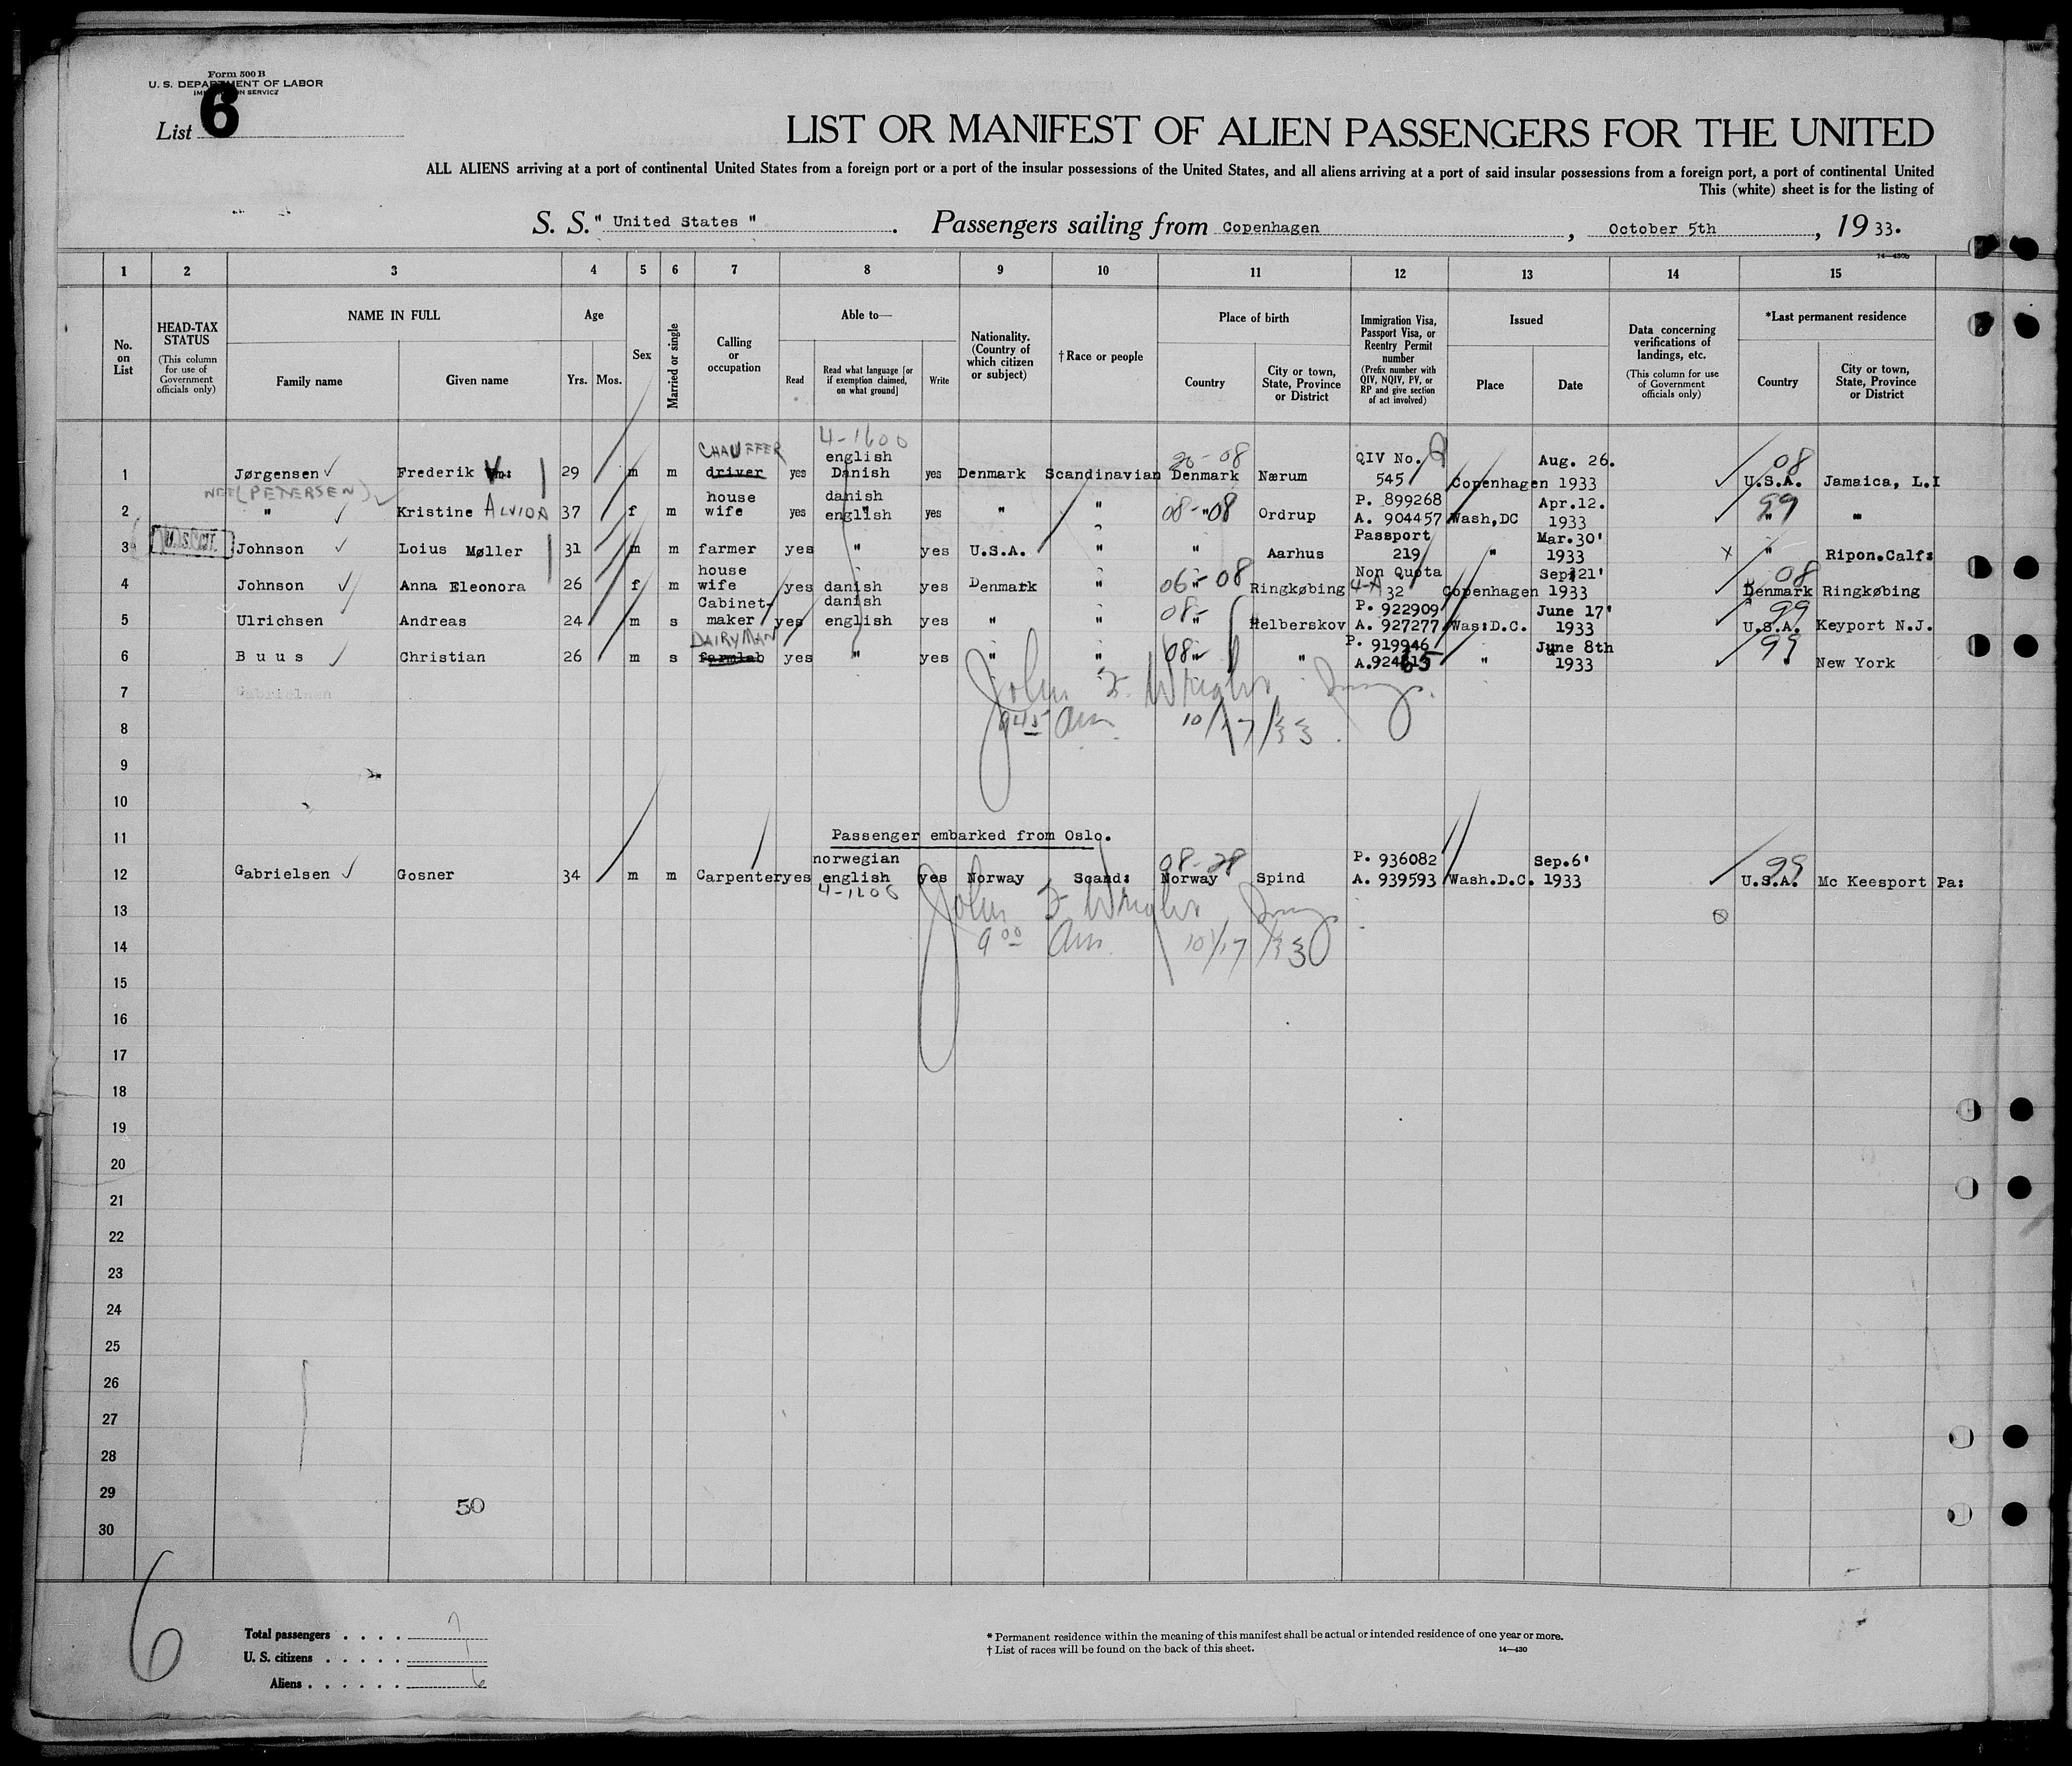 Form 500 B
U. S. DEPARTMENT OF LABOR
IMMIGRATION SERVICE
List 6
LIST OR MANIFEST OF ALIEN PASSENGERS FOR THE UNITED
ALL ALIENS arriving at a port of continental United States from a foreign port or a port of the insular possessions of the United States, and all aliens arriving at a port of said insular possessions from a foreign port, a port of continental United
This (white) sheet is for the listing of
S. S. " United States " . Passengers sailing from Copenhagen , October 5th , 19 33.
14—430b
1 2 3 4 5 6 7 8 9 10 11 12 13 14 15
No. on List
HEAD-TAX STATUS (This column for use of Government officials only)
NAME IN FULL Family name Given name
Age Yrs. Mos.
Sex
Married or single
Calling or occupation
Able to— Read Read what language [or if exemption claimed, on what ground] Write
Nationality. (Country of which citizen or subject)
† Race or people
Place of birth Country City or town, State, Province or District
Immigration Visa, Passport Visa, or Reentry Permit number (Prefix number with QIV, NQIV, PV, or RP and give section of act involved)
Issued Place Date
Data concerning verifications of landings, etc. (This column for use of Government officials only)
*Last permanent residence Country City or town, State, Province or District
CHAUFFER 4-1600
english 20-08 QIV No. Aug. 26. 08
1 Jørgensen Frederik Vm: 29 m m driver yes Danish yes Denmark Scandinavian Denmark Nærum 545 Copenhagen 1933 U.S.A. Jamaica, L.I
NEE (PETERSEN) house danish P. 899268 Apr.12. 99
2 " Kristine ALVIDA 37 f m wife yes english yes " " 08-"08 Ordrup A. 904457 Wash,DC 1933 " "
U.S.CIT. Passport Mar.30'
3 Johnson Loius Møller 31 m m farmer yes " yes U.S.A. " " Aarhus 219 " 1933 X " Ripon.Calf:
house Non Quota Sep:21' 08
4 Johnson Anna Eleonora 26 f m wife yes danish yes Denmark " 06-"08 Ringkøbing 4-A 32 Copenhagen 1933 Denmark Ringkøbing
Cabinet- danish P. 922909 June 17' 99
5 Ulrichsen Andreas 24 m s maker yes english yes " " 08-" Helberskov A. 927277 Was:D.C. 1933 U.S.A. Keyport N.J.
DAIRYMAN P. 919946 June 8th 99
6 B u u s Christian 26 m s farmlab yes " yes " " 08-" " A.924 65 " 1933 " New York
7 Gabrielsen John F. Wright
8 9 45 Am 10/17/33.
9
10
11 Passenger embarked from Oslo.
norwegian 08-28 P. 936082 Sep.6' 99
12 Gabrielsen Gosner 34 m m Carpenter yes english yes Norway Scand: Norway Spind A. 939593 Wash.D.C. 1933 U.S.A. Mc Keesport Pa:
4-1606
13 John F. Wright
14 9 00 Am. 10/17/33
15
16
17
18
19
20
21
22
23
24
25
26
27
28
29 50
30
6
Total passengers . . . . 7
U. S. citizens . . . . . 1
Aliens . . . . . . 6
* Permanent residence within the meaning of this manifest shall be actual or intended residence of one year or more.
† List of races will be found on the back of this sheet. 14—430